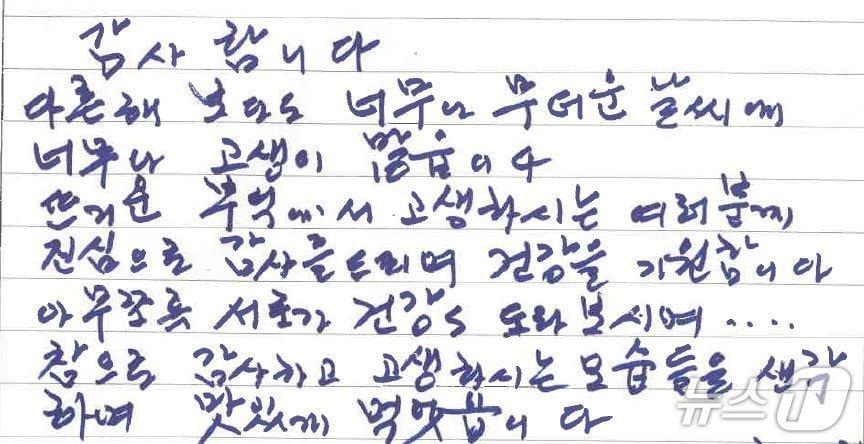 감사 합니다
다른해 보다도 너무나 무더운 날씨에
너무나 고생이 많읍니다
뜨거운 부엌에서 고생하시는 여러분께
진심으로 감사를 드리며 건강을 기원합니다
아무쪼록 서로가 건강도 도와 보시며....
참으로 감사하고 고생하시는 모습들을 생각
하며 맛있게 먹엇읍니다
뉴스1